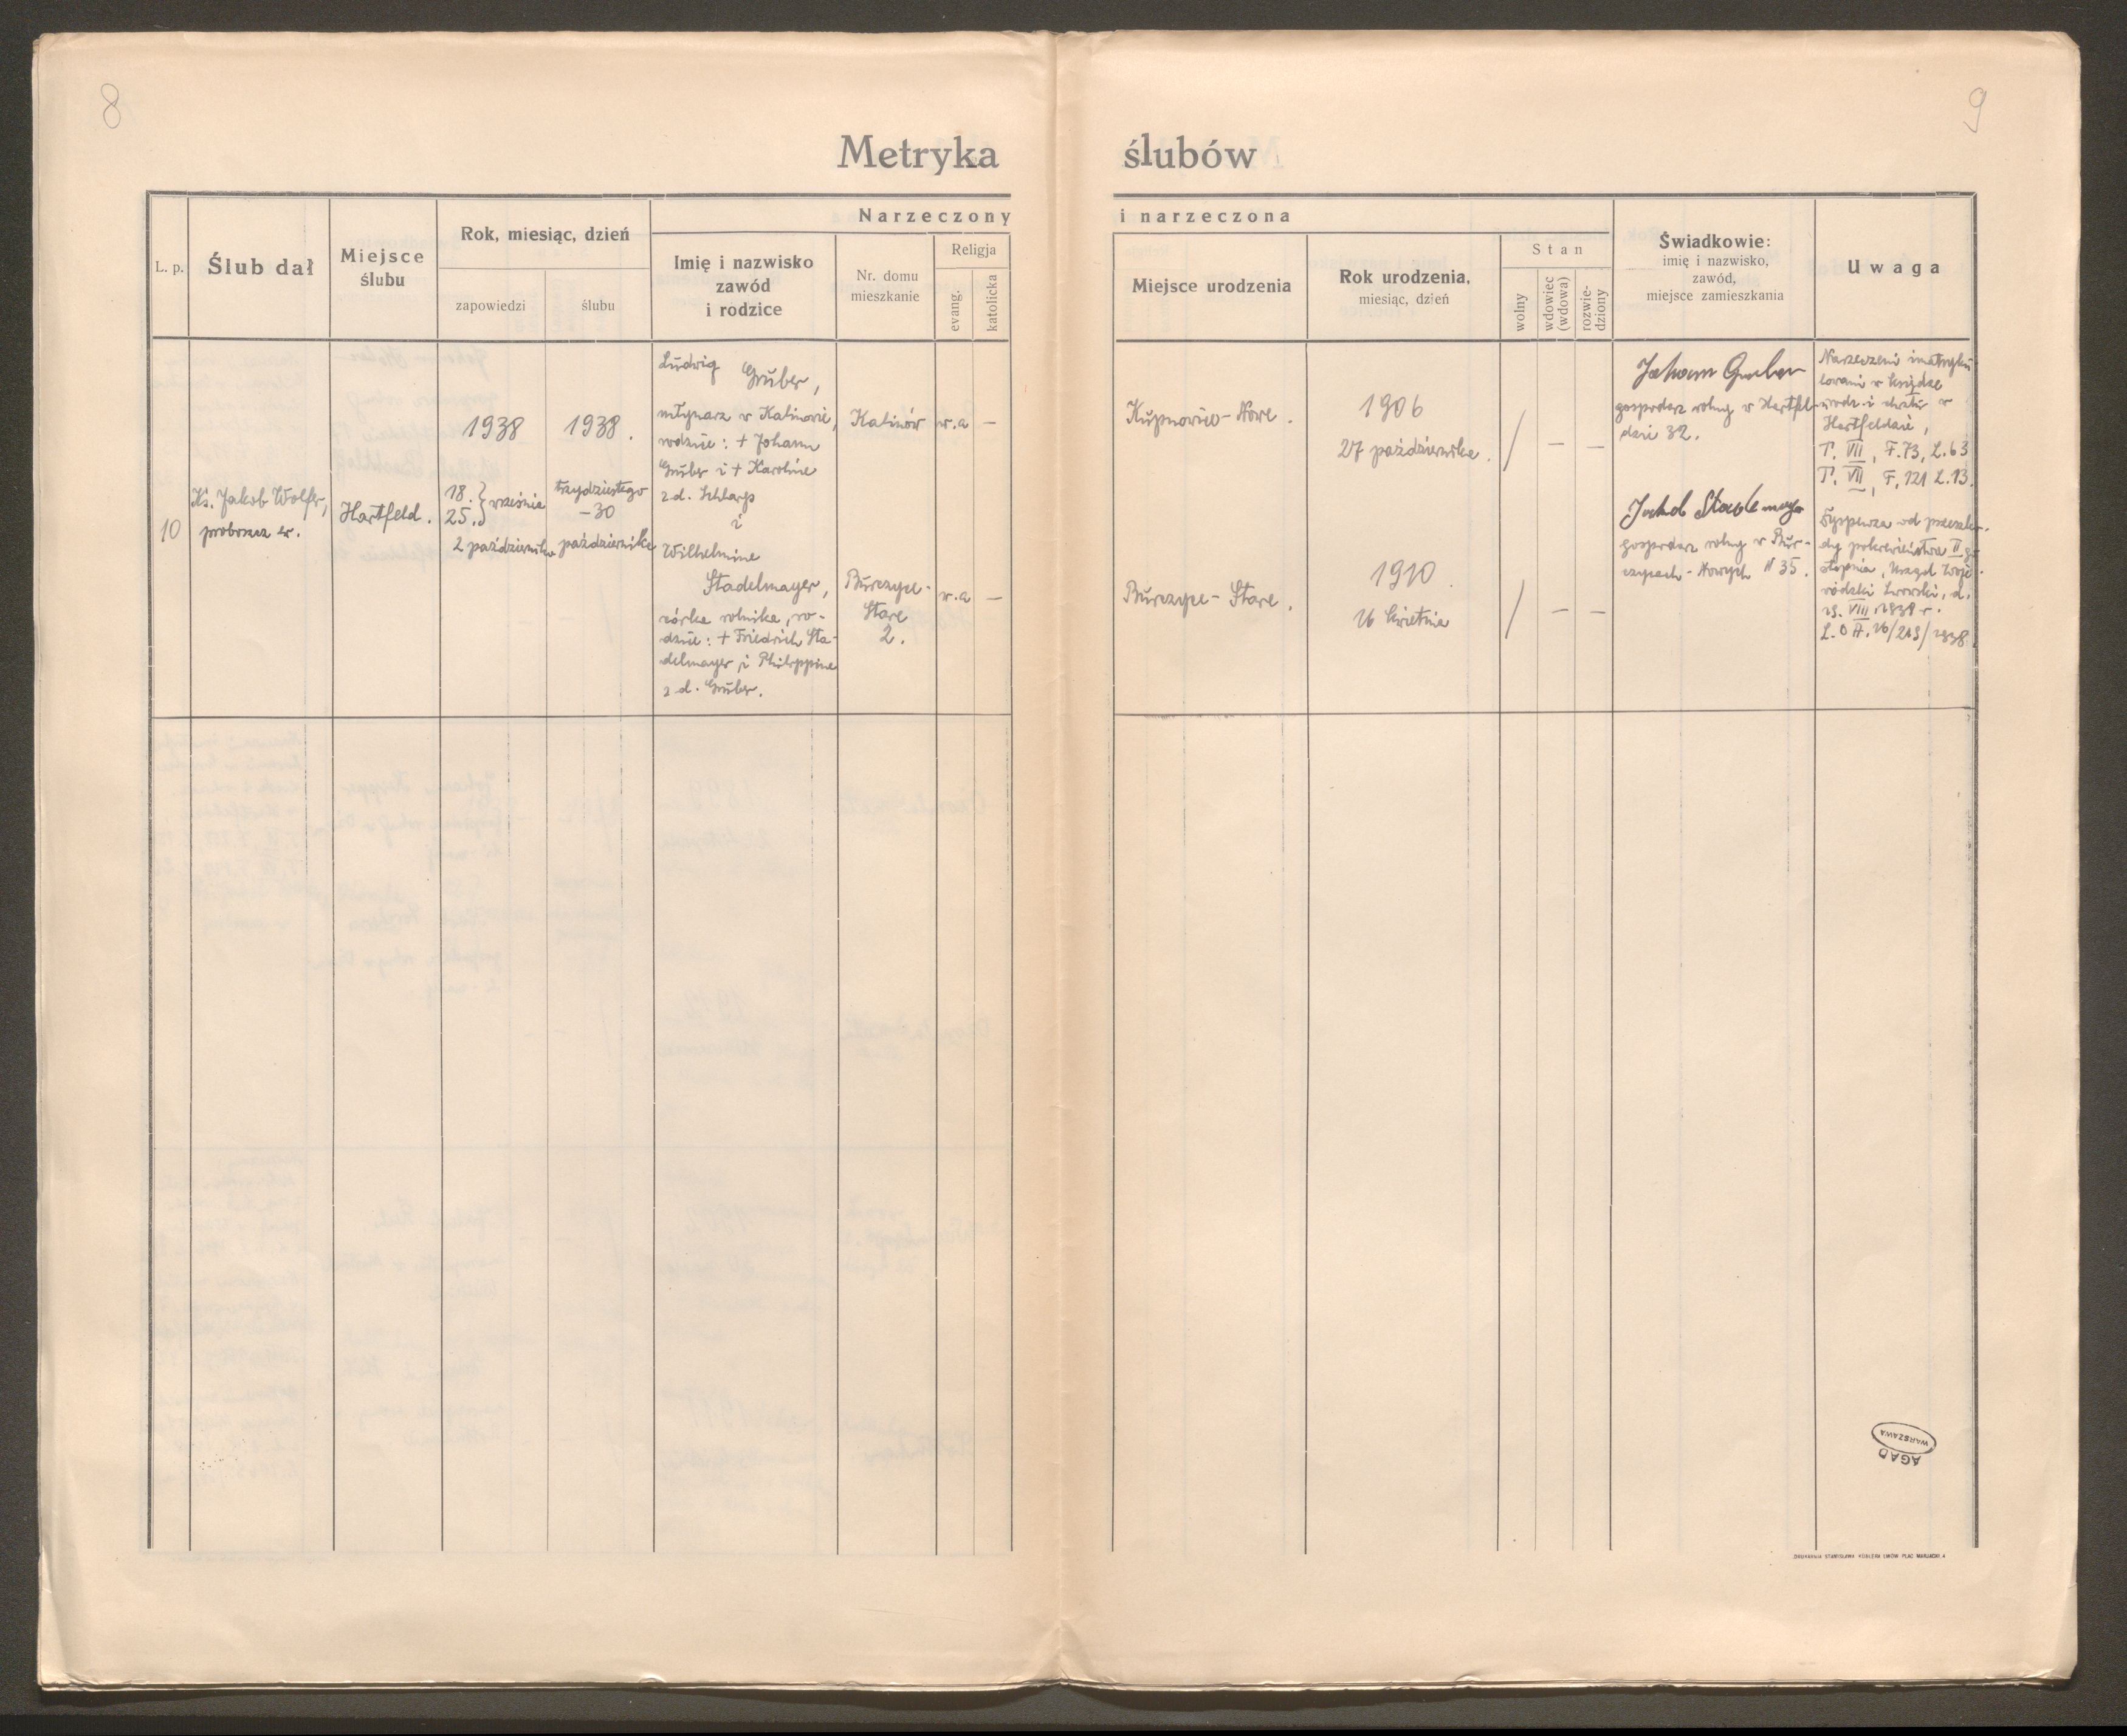 8
9
Metryka ślubów
Narzeczony i narzeczona
L. p.
Ślub dał
Miejsce
ślubu
Rok, miesiąc, dzień
zapowiedzi
ślubu
Imię i nazwisko
zawód
i rodzice
Nr. domu
mieszkanie
Religja
evang.
katolicka
Miejsce urodzenia
Rok urodzenia,
miesiąc, dzień
Stan
wolny
wdowiec
(wdowa)
rozwie-
dziony
Świadkowie:
imię i nazwisko,
zawód,
miejsce zamieszkania
Uwaga
10
Ks. Jakob Wolfer,
proboszcz ew.
Hartfeld.
1938
18. } września
25.
2 października
1938.
trzydziestego
-30
października
Ludwig
Gruber,
młynarz w Kalinowie,
rodzice: + Johann
Gruber i + Karoline
z d. Scharp
i
Wilhelmine
Stadelmayer,
córka rolnika, ro-
dzice: + Friedrich Sta-
delmayer i Philippine
z d. Gruber.
Kalinów
w.a
—
Burczyce-
Stare
2.
w.a
—
Kupnowice-Nowe.
Burczyce-Stare.
1906
27 października.
1910.
16 kwietnia
/ — —
/ — —
Johann Gruber
gospodarz rolny w Hartfel-
dzie 32.
Jakob Stadelmayer
gospodarz rolny w Bur-
czycach-Nowych N 35.
Narzeczeni imatryku-
lowani w księdze
urodz. i chrztu w
Hartfeldzie,
T. VIII, F. 73, L. 63
T. VII, F. 121 L. 13.
Dyspenza od przeszko-
dy pokrewieństwa II go
stopnia, Urząd Woje-
wódzki Lwowski, d.
VIII 1938 r.
L. O A. 16/213/1938.
AGAD
WARSZAWA
DRUKARNIA STANISŁAWA KOBLERA LWÓW PLAC MARJACKI 4